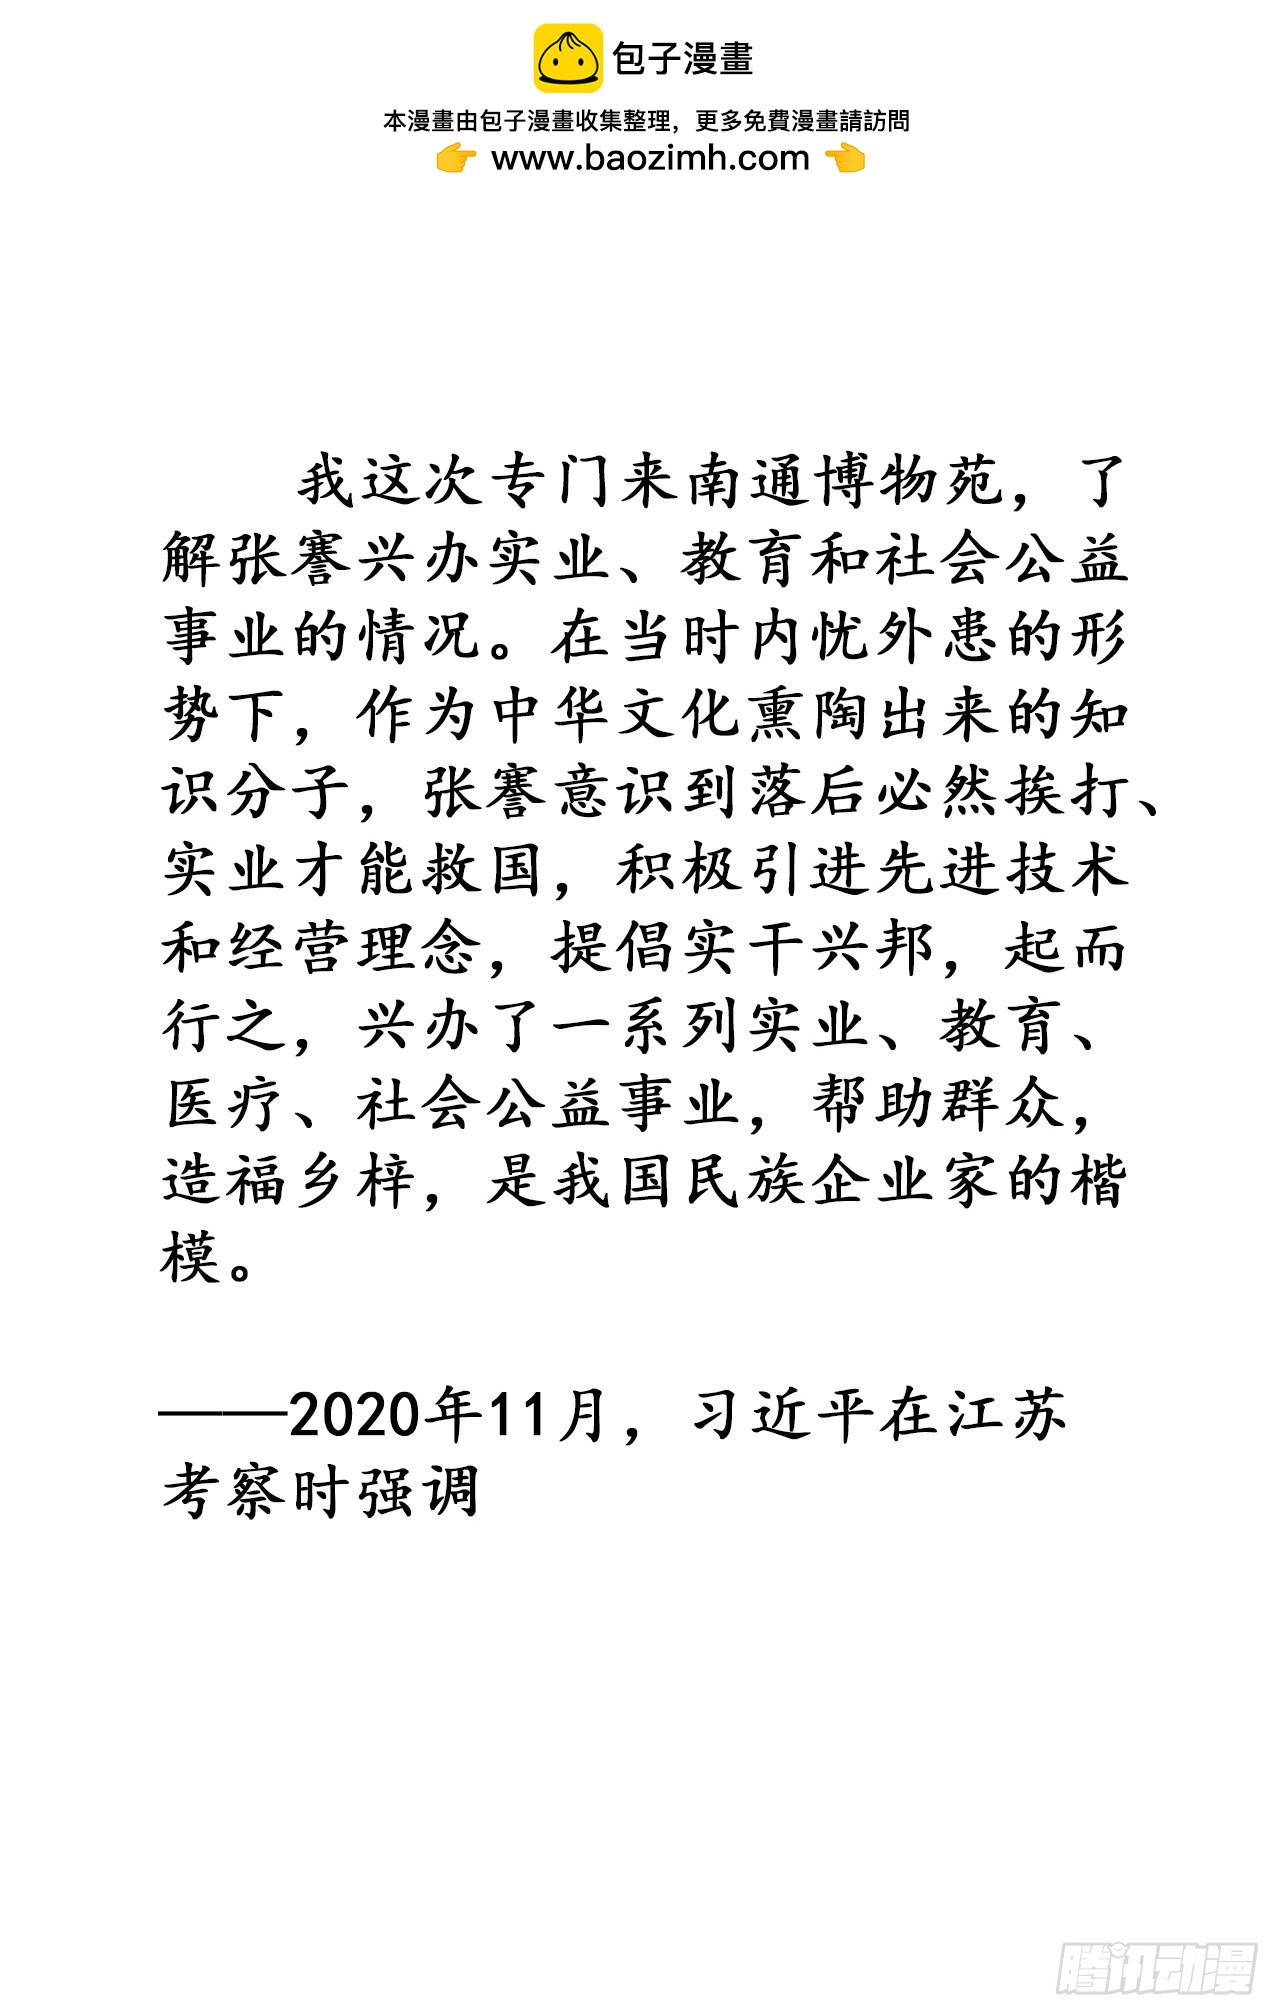 包子漫畫
本漫畫由包子漫畫收集整理，更多免費漫畫請訪問
www.baozimh.com
我这次专门来南通博物苑，了
解张謇兴办实业、教育和社会公益
事业的情况。在当时内忧外患的形
势下，作为中华文化熏陶出来的知
识分子，张謇意识到落后必然挨打、
实业才能救国，积极引进先进技术
和经营理念，提倡实干兴邦，起而
行之，兴办了一系列实业、教育、
医疗、社会公益事业，帮助群众，
造福乡梓，是我国民族企业家的楷
模。
——2020年11月，习近平在江苏
考察时强调
腾讯动漫